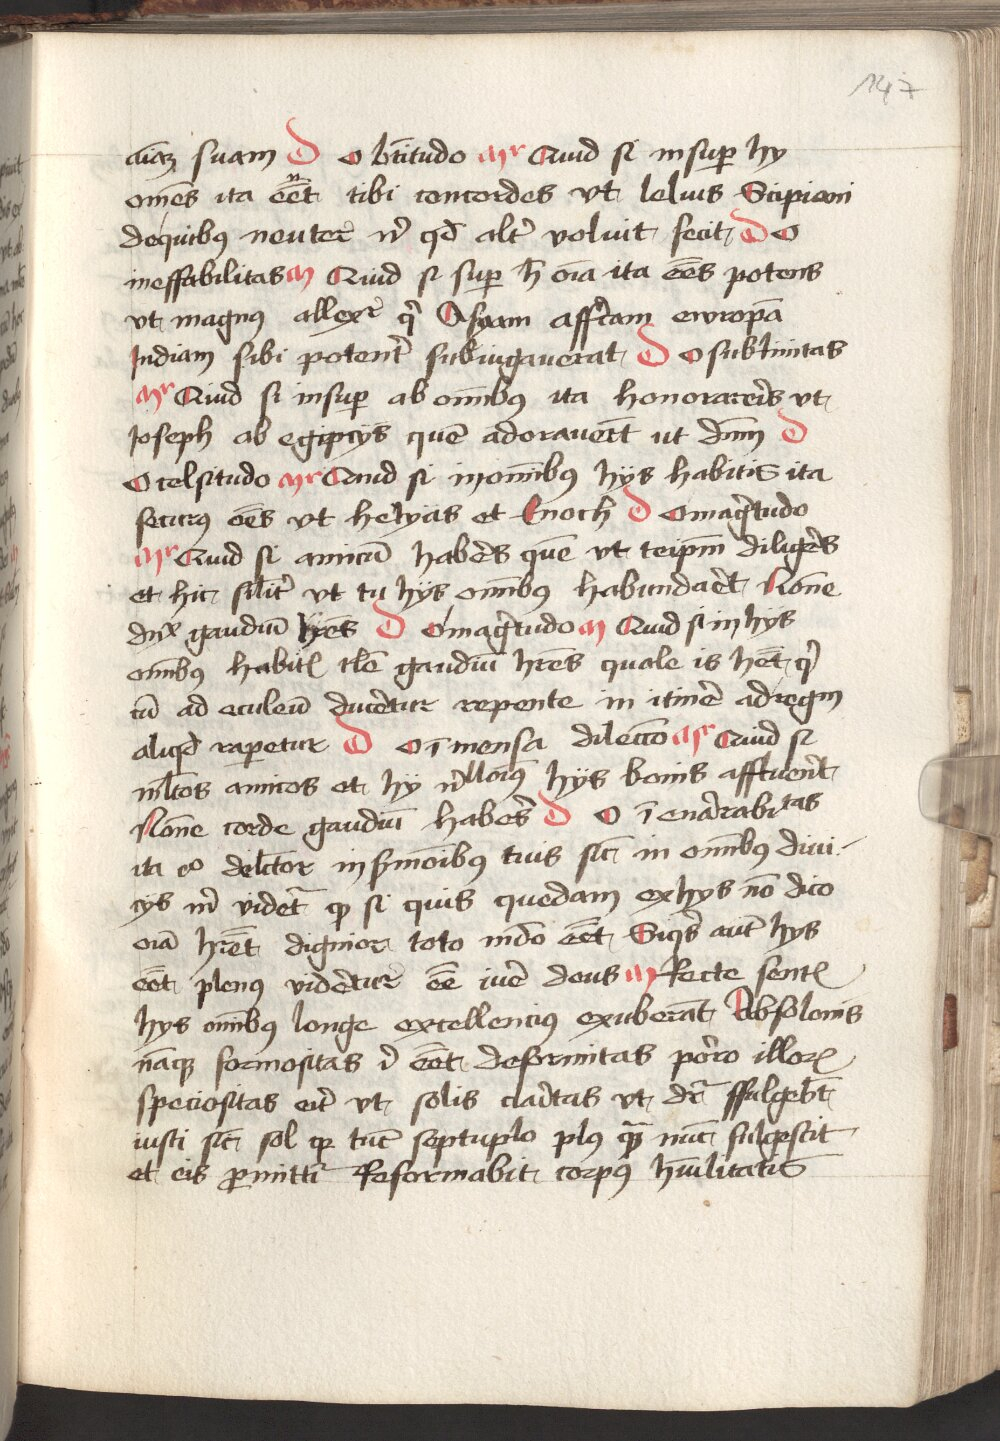 147
suam D O btitudo Mr Quid si insuper hy
omēs ita eēnt tibi concordes vt lelius Scipioni
de quibus neuter n̄ qd̄ alt̄ voluit fecit D O
ineffabilitas M Quid si super h̄ oīa ita eēs potens
vt magnus allexr̄ q̄ Asyam affricam europā
Indiam sibi potent̄ subiugauerat D O sublimitas
Mr Quid si insuper ab oīnibus ita honorareris vt
Joseph ab egipcys quē adorauert̄ ut dn̄m D
O celsitudo Mr Quid si in oīnibus hys habitis ita
securus oēs vt helyas et Enoch D O magr̄tudo
Mr Quid si amicū habēs quē vt teipm̄ diligēs
et hic silit̄ vt tu hys oīnibus habundaēt Nōne
gaudiū hr̄es D O magr̄tudo M Quid si in hys
oīnibus habit tlē gaudiū hr̄es quale is hēt q̄
cū ad eculeū ducēr̄etur repente in itinē ad regm̄
aliqd̄ raperetur D O īmensa dilecco Mr Quid si
ml̄tos amicos et hy illorū hys bonis affluent̄
Nōne corde gaudiū habes̄ D O īenarrabitas
ita eo delc̄tor in sm̄oibus tuis sic̄ in oīnibus diui-
cys vider̄ q si quis quedam ex hys nō dico
oīa hr̄et dignior toto mūdo eēt Siqs̄ aut̄ hys
eēt plenus videret̄ur eē iuē deus M Recte sent
hys oīnibus longe excellencius exuberāt Absolonis
nāque formositas ī eēt deformitas porro illor
speciositas erit̄ vt solis clar̄tas vt dr̄ ffulgebt̄
iusti sic̄ sol qr tūc septuplo plus quā nūc fulgescit
et eis p̄mitti Reformabit corpus hūilitatis